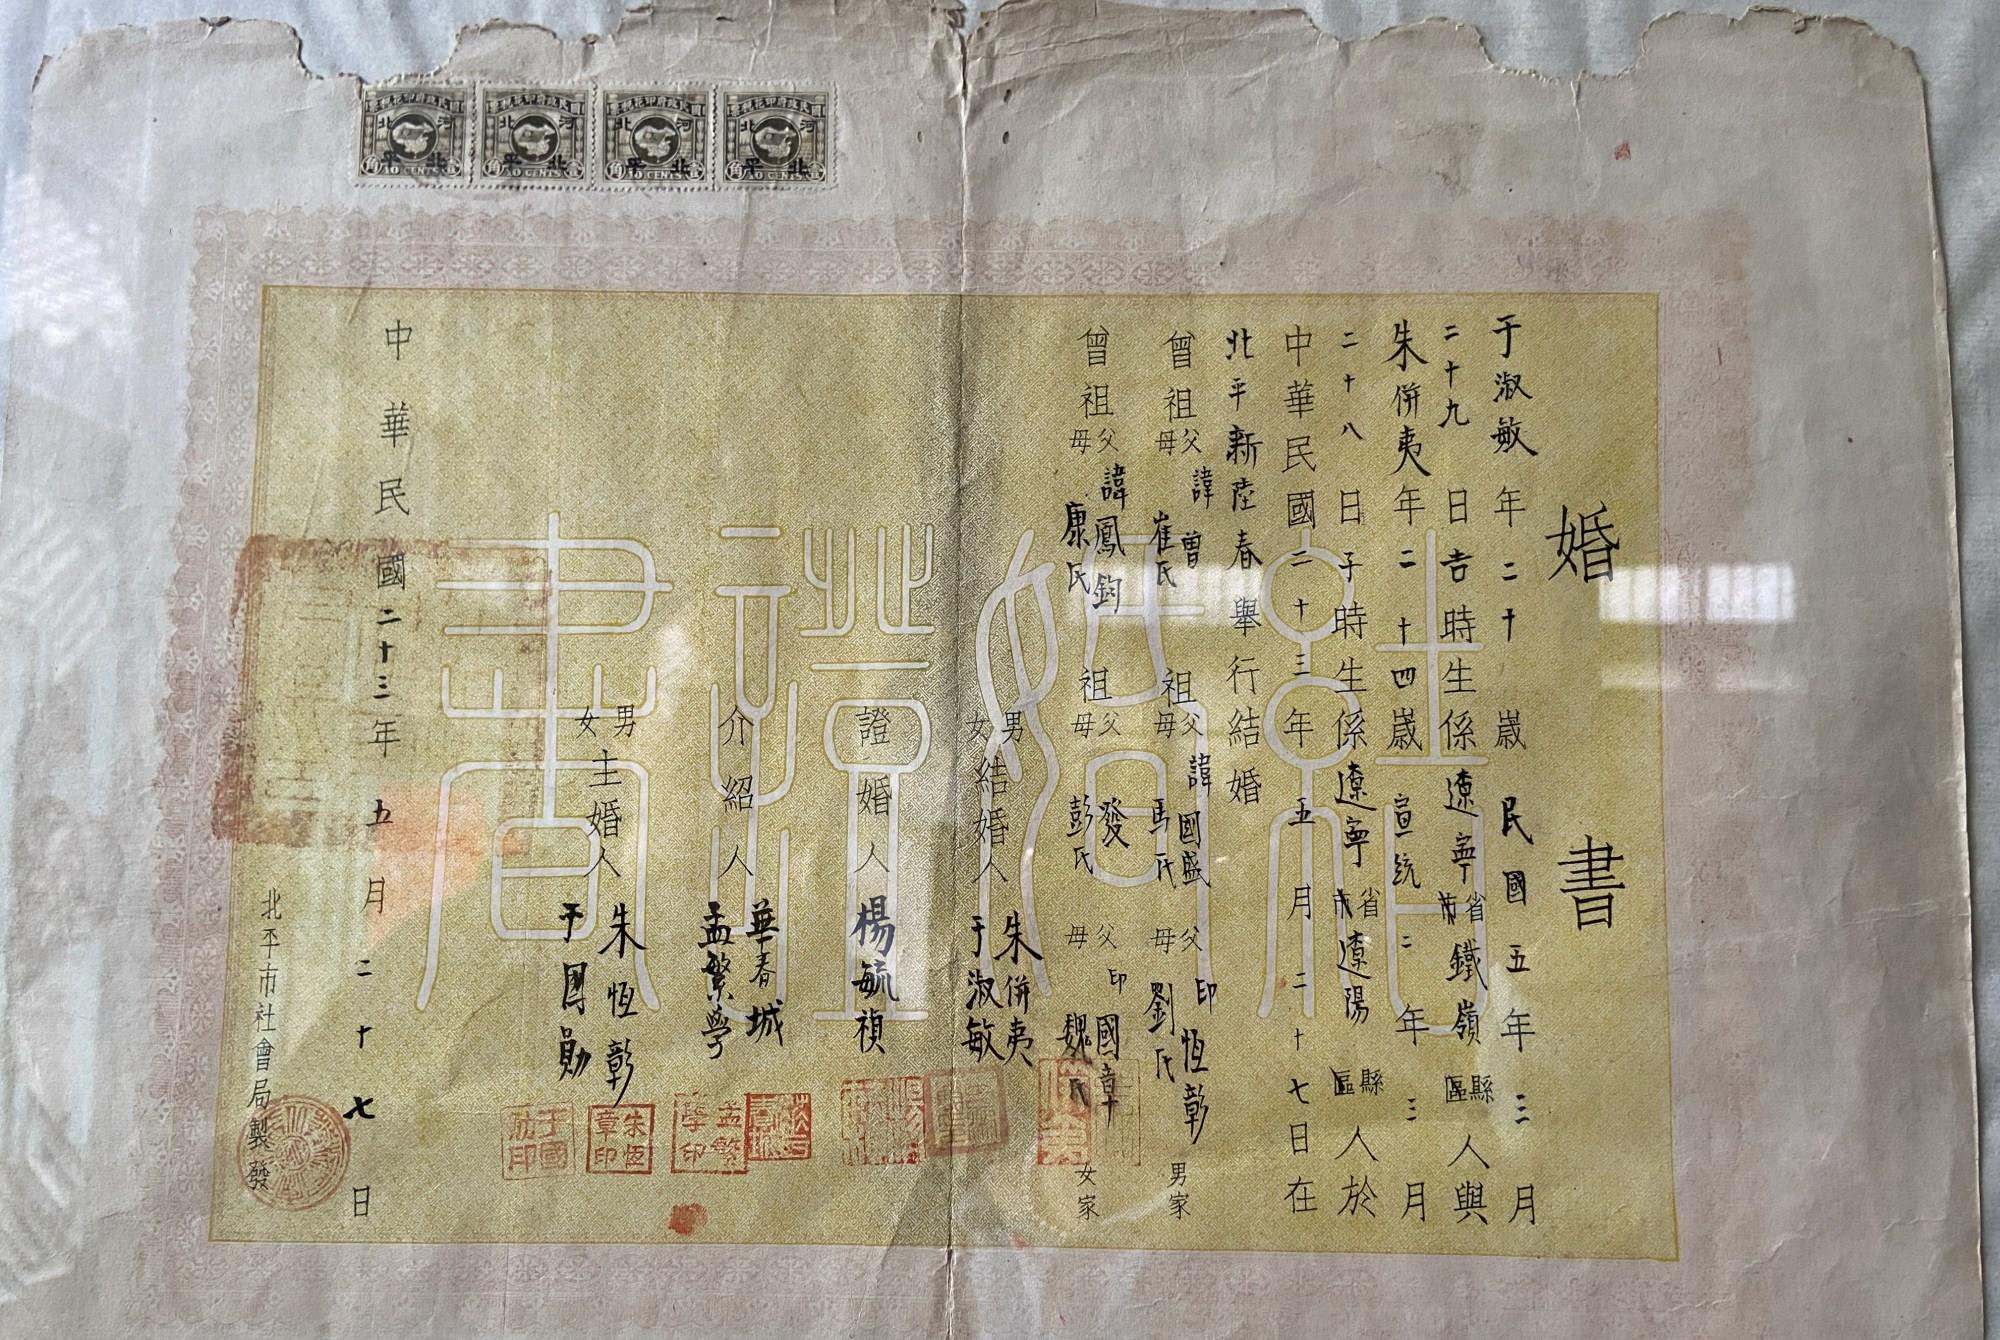 婚書
于淑敏年二十歲民國五年三月
二十九日吉時生係遼寧省市鐵嶺縣區人與
朱併夷年二十四歲宣統二年三月
二十八日子時生係遼寧省市遼陽縣區人於
中華民國二十三年五月二十七日在
北平新陸春舉行結婚
曾祖父諱曾 母崔氏 祖父諱國盛 母馬氏 父印恆彰 母劉氏 男家
曾祖父諱鳳鈞 母康氏 祖父發 母彭氏 父印國章 母魏氏 女家
男女結婚人 朱併夷 于淑敏
證婚人 楊毓禎
介紹人 華春城 孟繁學
男女主婚人 朱恆彰 于國勛
中華民國二十三年五月二十七日
北平市社會局製發
結婚證書
河北
北平
10 CENTS
河北
北平
10 CENTS
河北
北平
10 CENTS
河北
北平
10 CENTS
孟繁學印
朱恆章印
于國勛印